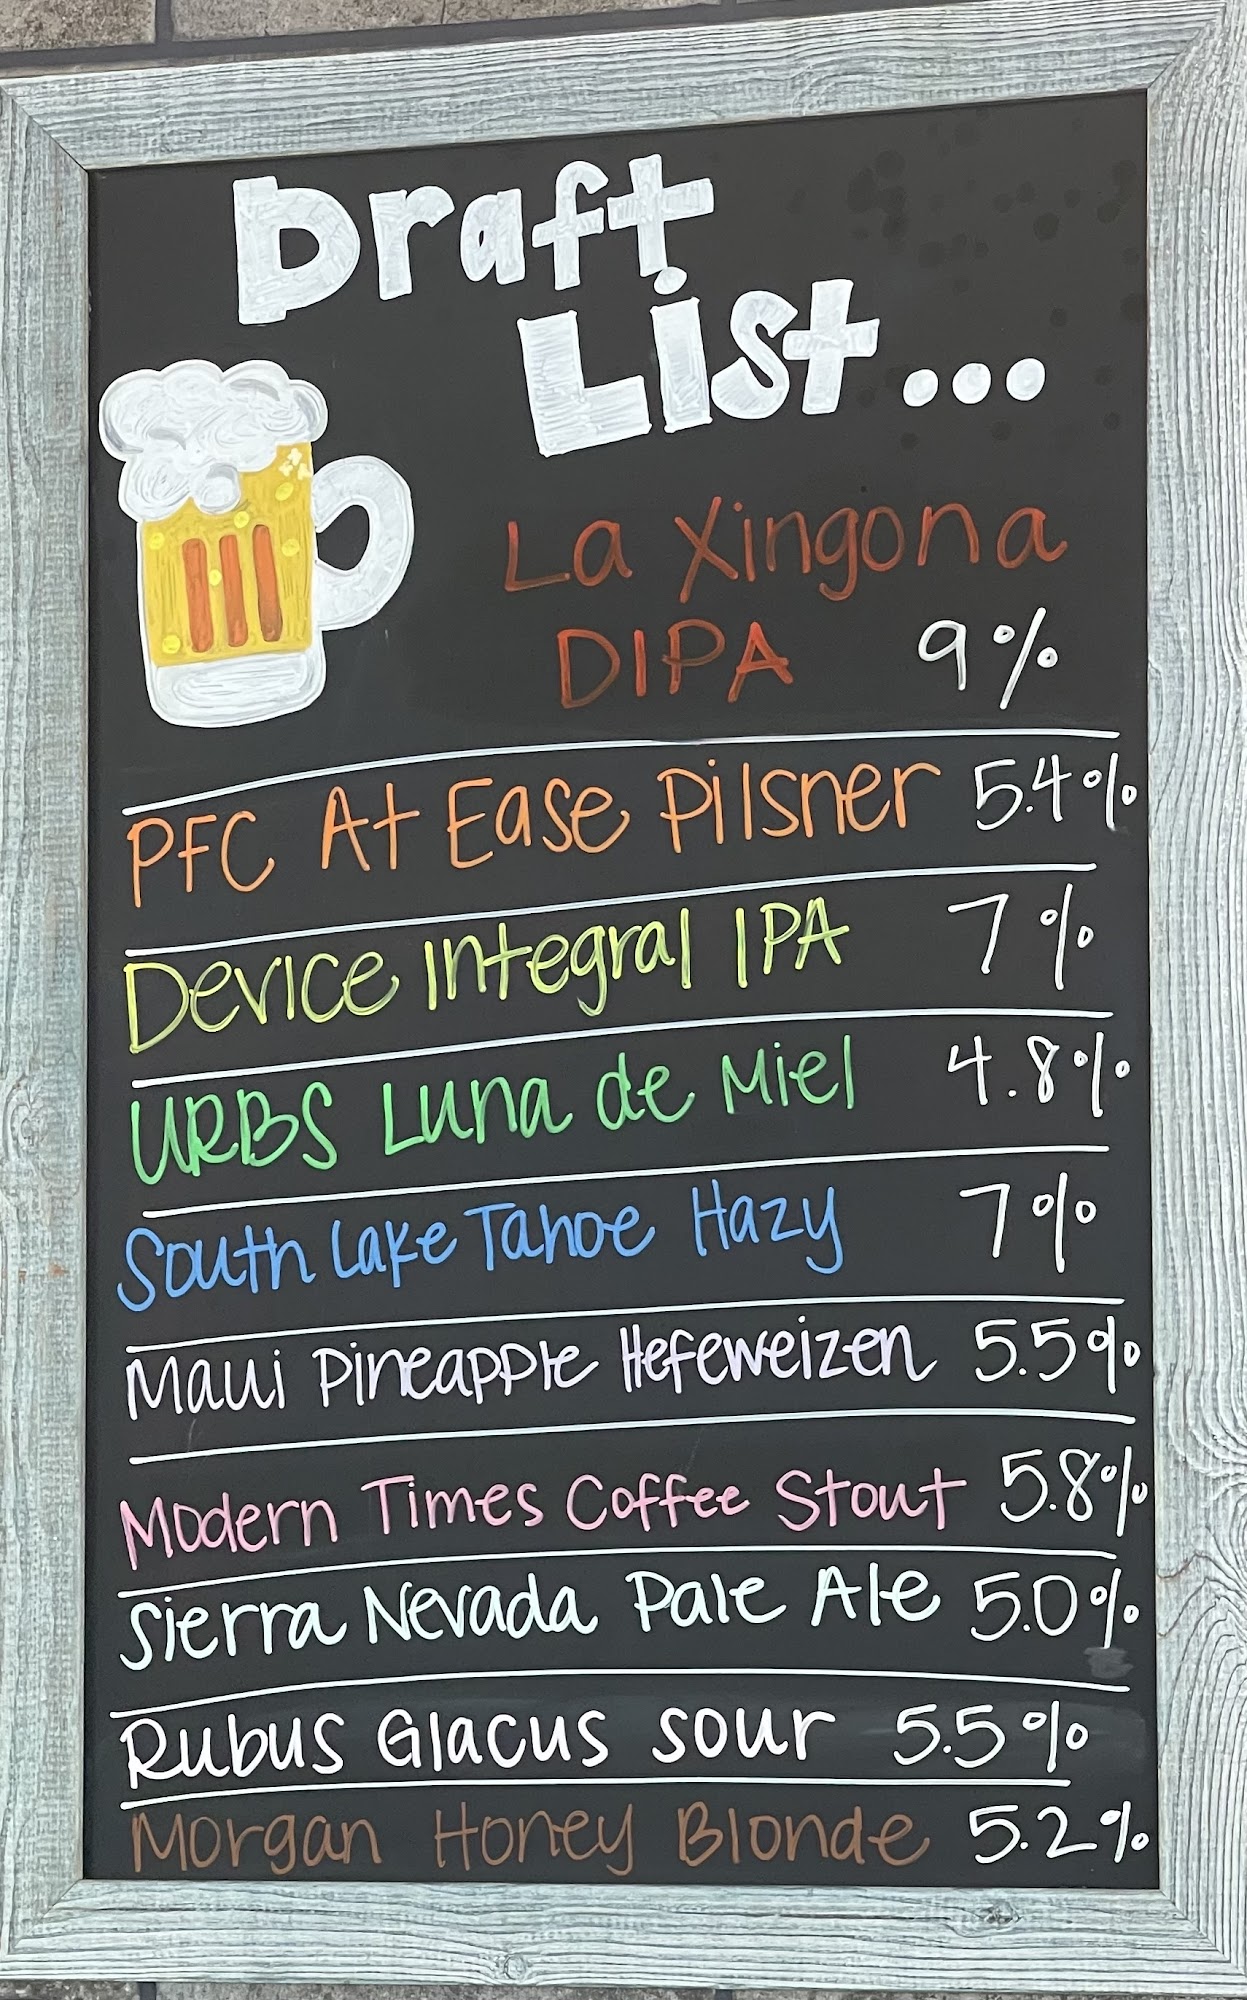 Draft
List...
La Xingona
DIPA 9%
PFC At Ease Pilsner 5.4%
Device Integral IPA 7%
URBS Luna de Miel 4.8%
South Lake Tahoe Hazy 7%
Maui Pineapple Hefeweizen 5.5%
Modern Times Coffee Stout 5.8%
Sierra Nevada Pale Ale 5.0%
Rubus Glacus sour 5.5%
Morgan Honey Blonde 5.2%